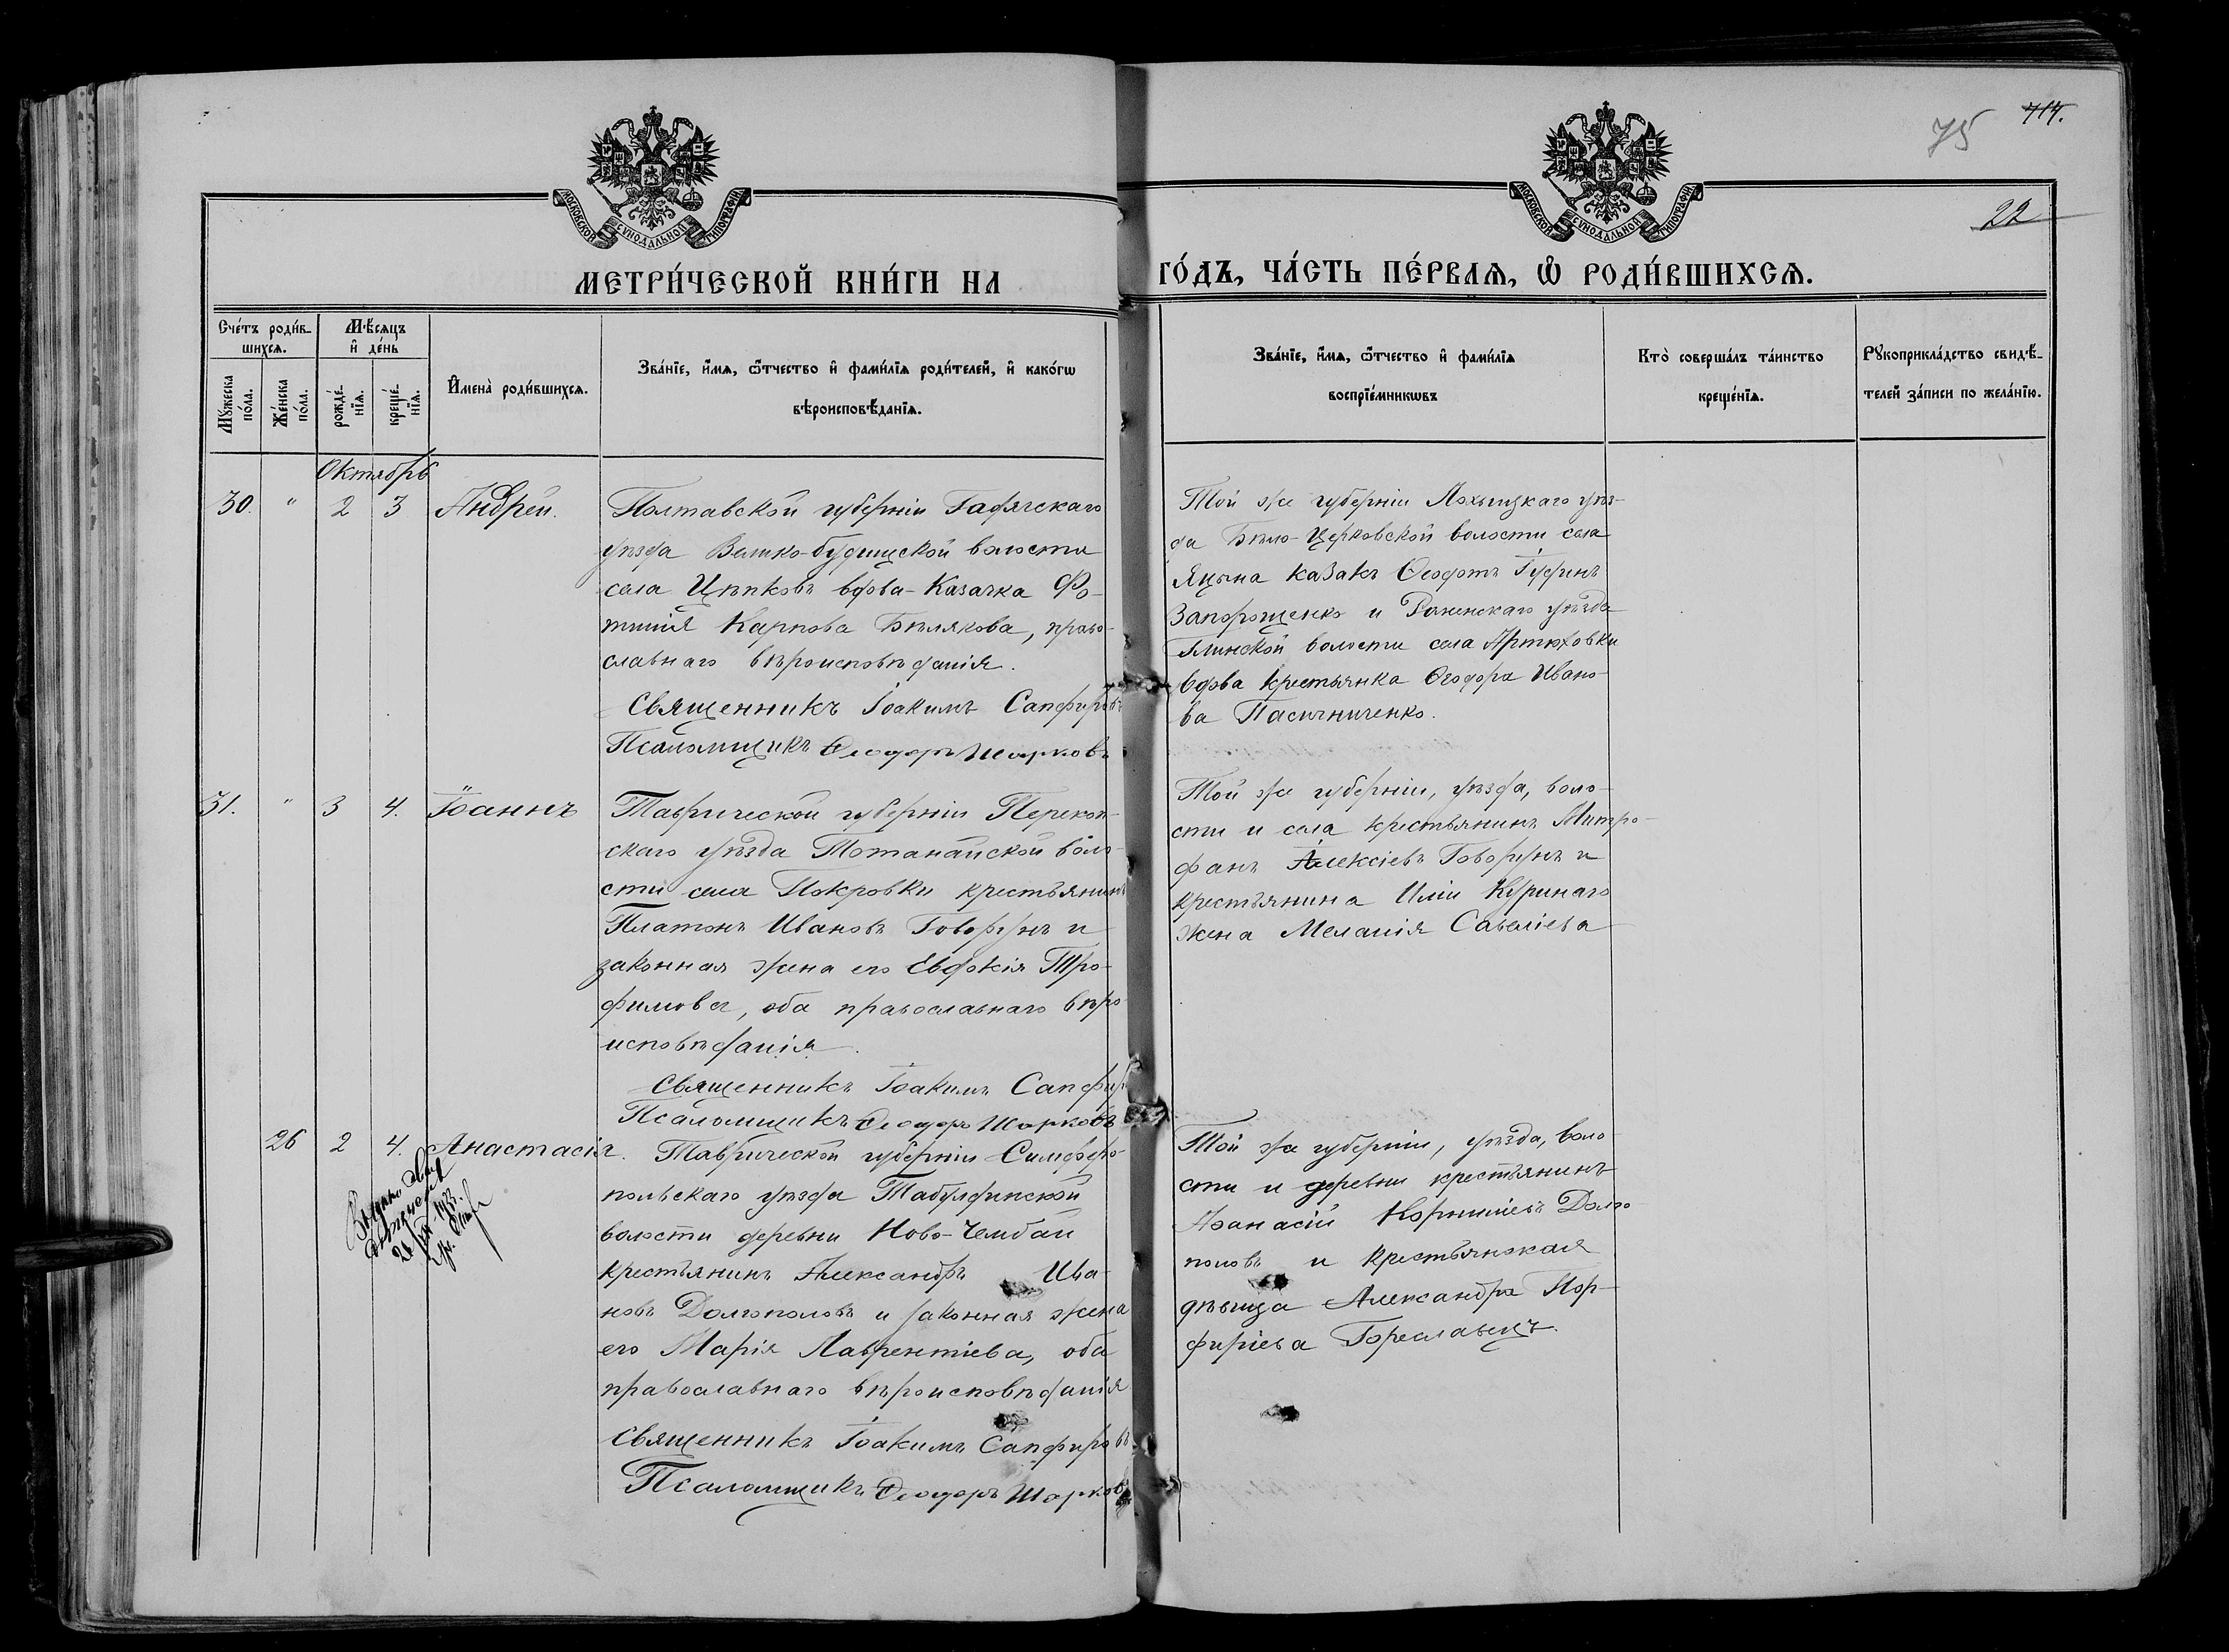 75 714.
22
МОСКОВСКОЙ СѴНОДАЛЬНОЙ ТИПОГРАФІИ
МОСКОВСКОЙ СѴНОДАЛЬНОЙ ТИПОГРАФІИ
МЕТРИ́ЧЕСКОЙ КНИ́ГИ НА
ГО́ДЪ, ЧА́СТЬ ПЕ́РВАѦ, Ѡ҆ РОДИ́ВШИХСѦ.
Сче́тъ роди́в-
шихсѧ.
Мѣ́сѧцъ
и҆ де́нь
Мꙋ́жеска
по́ла.
Же́нска
по́ла.
рожде́-
нїѧ.
креще́-
нїѧ.
И҆мена̀ роди́вшихсѧ.
Зва́нїе, и҆́мѧ, ѻ҆́тчество и҆ фами́лїѧ роди́телей, и҆ како́гѡ
вѣроисповѣ́данїѧ.
Зва́нїе, и҆́мѧ, ѻ҆́тчество и҆ фами́лїѧ
воспрїе́мникѡвъ
Кто̀ соверша́лъ та́инство
креще́нїѧ.
Рꙋкоприкла́дство свидѣ́-
телей за́писи по жела́нїю.
Октябрь
30. " 2 3 Андрей.
Полтавской губерніи Гадячскаго
уѣзда Велико-будищской волости
села Цѣпковъ вдова-казачка Фо-
тинія Карпова Бѣлякова, право-
славнаго вѣроисповѣданія.
Священникъ Іоакимъ Сапфировъ
Псаломщикъ Ѳеодоръ Шарковъ
Той же губерніи Лохвицкаго уѣз-
да Бѣло-Церковской волости села
Яцына казакъ Ѳеодотъ
Запорощенко и Роменскаго уѣзда
Глинской волости села Артюховки
вдова крестьянка Ѳеодора Ивано-
ва Пасичниченко.
31. " 3 4. Іоаннъ
Таврической губерніи Перекоп-
скаго уѣзда Тотанайской воло-
сти села Покровки крестьянинъ
Платонъ Ивановъ Говорунъ и
законная жена его Евдокія Тро-
фимова, оба православнаго вѣро-
исповѣданія.
Священникъ Іоакимъ Сапфир
Псаломщикъ Ѳеодоръ Шарковъ
Той же губерніи, уѣзда, воло-
сти и села крестьянинъ Митро-
фанъ Алексіевъ Говорунъ и
крестьянина Иліи Куринаго
жена Меланія Савеліева
26 2 4. Анастасія.
Выдано
Таврической губерніи Симферо-
польскаго уѣзда Табулдинской
волости деревни Ново-Чембай
крестьянинъ Александръ Ива-
новъ Долгополовъ и законная жена
его Марія Лаврентіева, оба
православнаго вѣроисповѣданія
Священникъ Іоакимъ Сапфировъ
Псаломщикъ Ѳеодоръ Шарковъ
Той же губерніи, уѣзда, воло-
сти и деревни крестьянинъ
Аѳанасій Корниліевъ Долго-
половъ и крестьянская
дѣвица Александра Пор-
фиріева Гореславецъ.